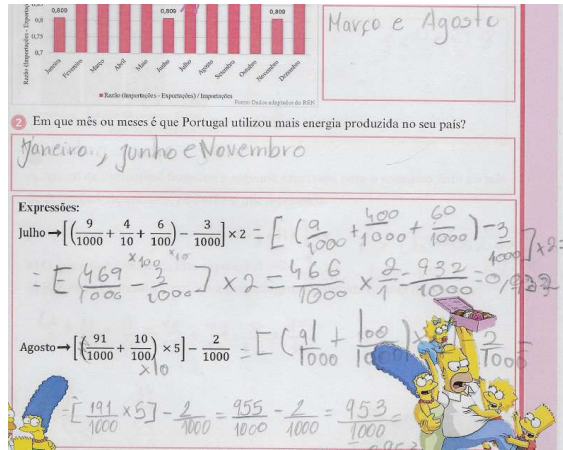 0,809
0,809
0,809
0,8
0,75
0,7
Janeiro Fevereiro Março Abril Maio Junho Julho Agosto Setembro Outubro Novembro Dezembro
Razão (Importações - Exportações) / Importações
Fonte: Dados adaptados do REN
Março e Agosto
2 Em que mês ou meses é que Portugal utilizou mais energia produzida no seu país?
Janeiro, junho e Novembro
Expressões:
Julho → [(9/1000 + 4/10 + 6/100) − 3/1000] × 2 = [(9/1000 + 400/1000 + 60/1000) − 3/1000] × 2 =
×100 ×10
= [469/1000 − 3/1000] × 2 = 466/1000 × 2/1 = 932/1000 = 0,932
Agosto → [(91/1000 + 10/100) × 5] − 2/1000 = [(91/1000 + 100/1000) × − 2/1000 =
×10
= [191/1000 × 5] − 2/1000 = 955/1000 − 2/1000 = 953/1000 =